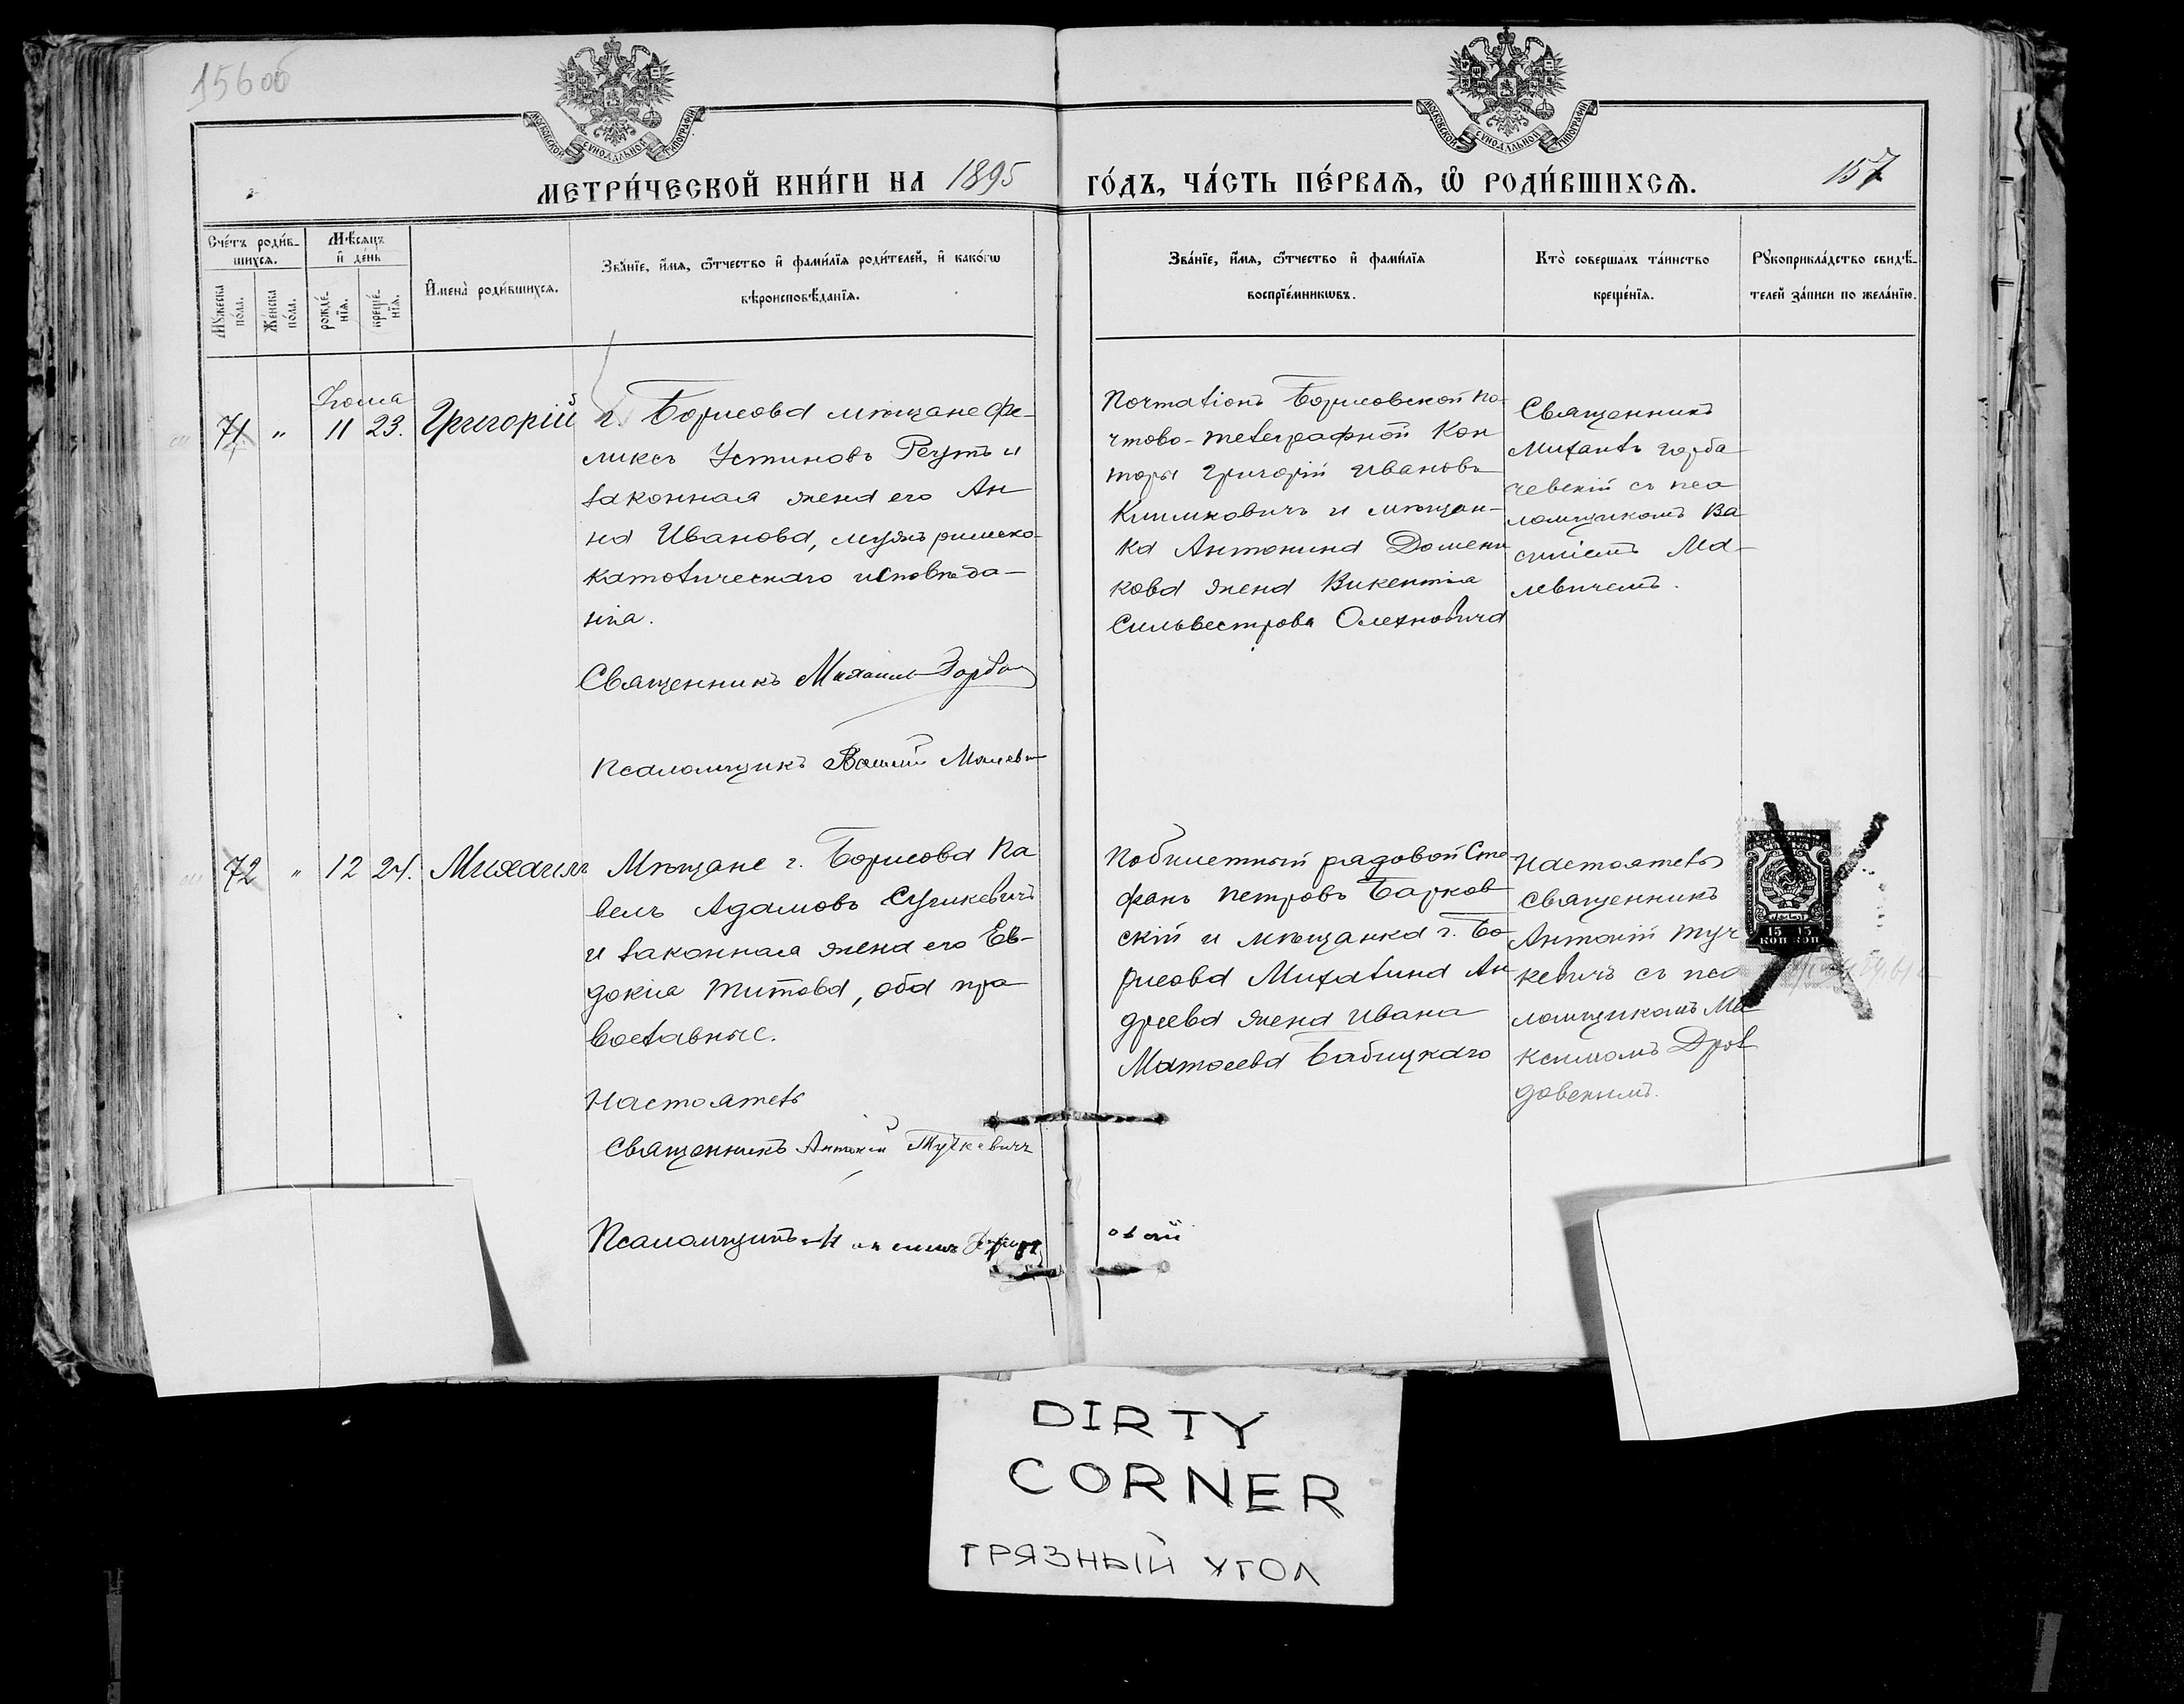 156об
МОСКОВСКОЙ СѴНОДАЛЬНОЙ ТИПОГРАФІИ
МОСКОВСКОЙ СѴНОДАЛЬНОЙ ТИПОГРАФІИ
МЕТРИ́ЧЕСКОЙ КНИ́ГИ НА 1895 ГО́ДЪ, ЧА́СТЬ ПЕ́РВАѦ, Ѡ҆ РОДИ́ВШИХСѦ. 157
Сче́тъ роди́в-
шихсѧ.
Му́жеска
по́ла.
Же́нска
по́ла.
Мѣ́сяцъ
и҆ де́нь
рожде́-
нїѧ.
креще́-
нїѧ.
И҆мена̀ роди́вшихсѧ.
Зва́нїе, и҆́мѧ, ѻ҆́тчество и҆ фами́лїѧ роди́телей, и҆ како́гѡ
вѣроисповѣ́данїѧ.
Зва́нїе, и҆́мѧ, ѻ҆́тчество и҆ фами́лїѧ
воспрїе́мникѡвъ.
Кто̀ соверша́лъ та́инство
креще́нїѧ.
Рꙋкоприкла́дство свидѣ́-
телей за́писи по жела́нїю.
Іюня
71 " 11 23. Григорій
г. Борисова мѣщане Фе-
ликсъ Устиновъ Реутъ и
законная жена его Ан
на Иванова, мужъ римско-
католическаго исповѣда-
нія.
Священникъ Михаилъ Горбац
Псаломщикъ Василій Малеви
Почталіонъ Борисовской По-
чтово-телеграфной Кон
торы Григорій Ивановъ
Климковичъ и мѣщан-
ка Антонина Домени
кова жена Викентія
Сильвестрова Олехновича
Священникъ
Михаилъ Горба
чевскій съ пса
ломщикомъ Ва
силіемъ Ма-
левичемъ.
72 " 12 24. Михаилъ
Мѣщане г. Борисова Па
велъ Адамовъ Сушкевичъ
и законная жена его Ев-
докія Титова, оба пра
вославные.
Настоятель
Священникъ Антоній Тучкевичъ
Псаломщикъ
Побилетный рядовой Сте
фанъ Петровъ Барков
скій и мѣщанка г. Бо-
рисова Михалина Ан
дреева жена Ивана
Матѳеева Бабицкаго
Настоятель
священникъ
Антоній Туч
кевичъ съ пса
ломщикомъ Ма
ксимомъ Дроз
довскимъ.
15 15
КОП КОП
DIRTY
CORNER
ГРЯЗНЫЙ УГОЛ